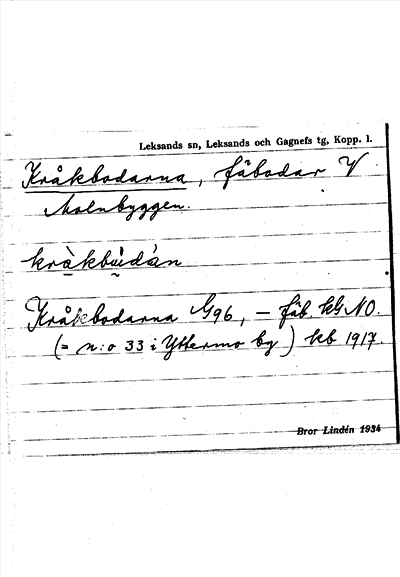 Leksands sn, Leksands och Gagnefs tg, Kopp. l.
Kråkbodarna, fäbodar V
Molnbyggen.
kràkbùdàn
Kråkbodarna G96, – fäb. kG NO.
(= n:o 33 i Yttermo by) kb 1917.
Bror Lindén 1934